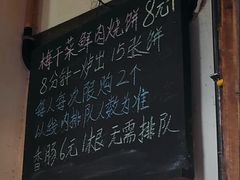 梅干菜鲜肉烧饼8元1
8分钟一炉出15张饼
每人每次限购2个
以线内排队人数为准
香肠6元1根 无需排队